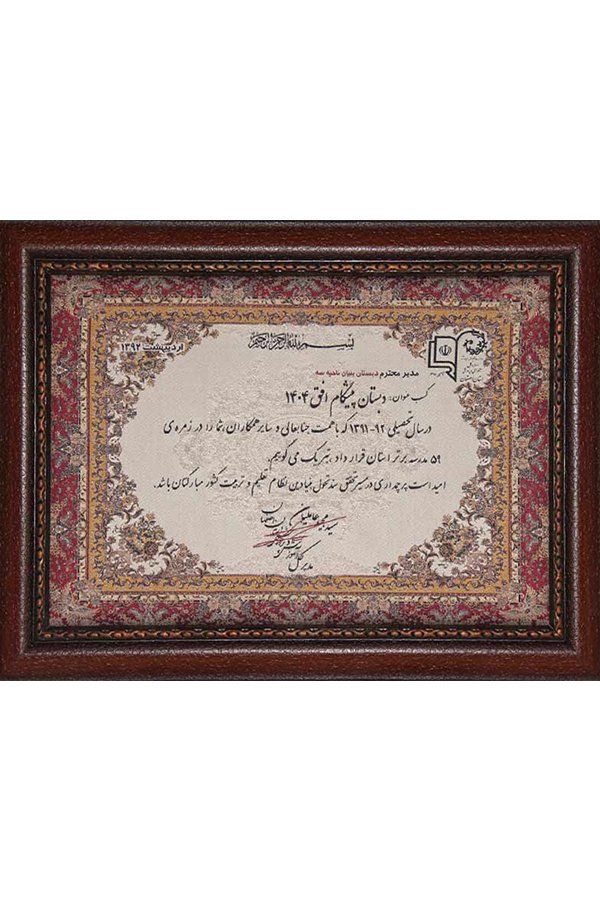 بسم الله الرحمن الرحیم
اردیبهشت ۱۳۹۲
مدیر محترم دبستان بنیان ناحیه سه
کسب عنوان: دبستان پیشگام افق ۱۴۰۴
در سال تحصیلی ۹۲-۱۳۹۱ که با همت جنابعالی و سایر همکاران شما را در زمره ی
۵۹ مدرسه برتر استان قرار داد ، تبریک می گوییم.
امید است پرچمداری در مسیر تحقق سند تحول بنیادین نظام تعلیم و تربیت کشور مبارکتان باشد.
مدیر کل